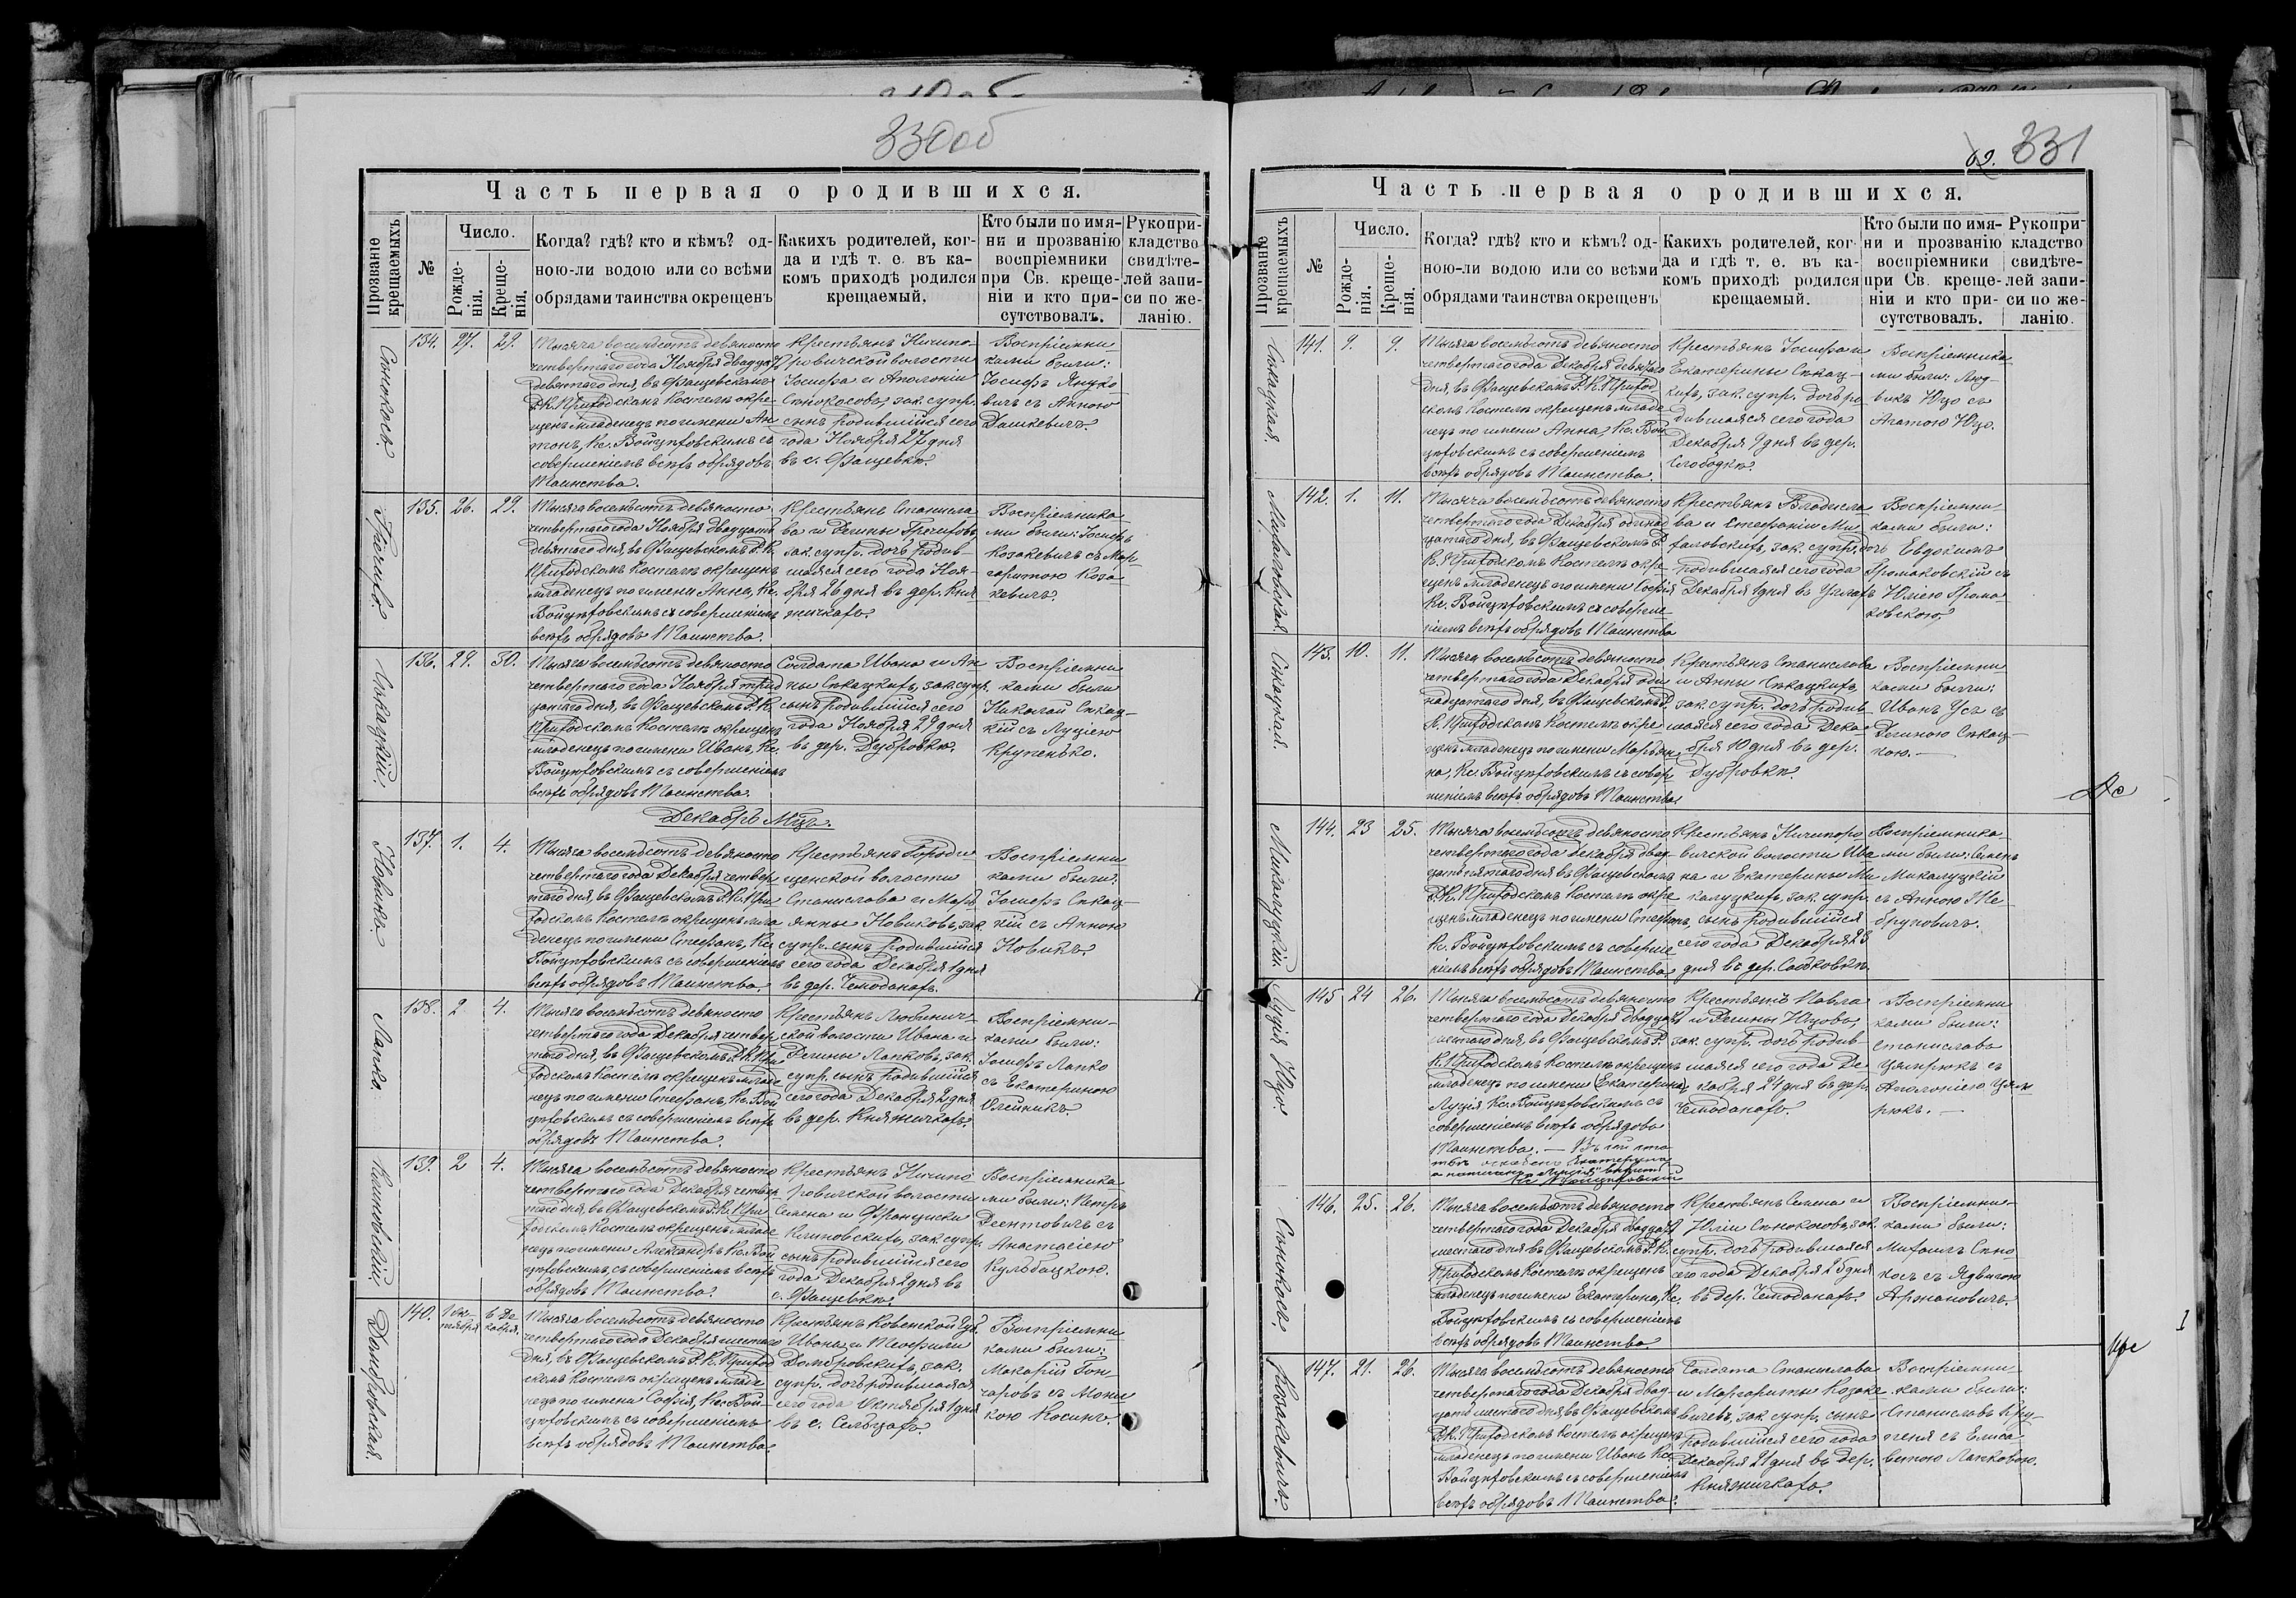 330об
Часть первая о родившихся.
Прозваніе крещаемыхъ
№
Число.
Рожде-
нія.
Креще-
нія.
Когда? гдѣ? кто и кѣмъ? од-
ною-ли водою или со всѣми
обрядами таинства окрещенъ
Какихъ родителей, ког-
да и гдѣ т. е. въ ка-
комъ приходѣ родился
крещаемый.
Кто были по имя-
ни и прозванію
воспріемники
при Св. креще-
ніи и кто при-
сутствовалъ.
Рукопри-
кладство
свидѣте-
лей запи-
си по же-
ланію.
Сѣнокосъ.
134. 27. 29.
Тысяча восемьсотъ девяносто
четвертаго года Ноября двадцать
девятаго дня, въ Фащевскомъ
Р. К. Приходскомъ Костелѣ окре-
щенъ младенецъ по имени Ан
тонъ, Кс. Войцѣховскимъ съ
совершеніемъ всѣхъ обрядовъ
Таинства.
Крестьянъ Ничипо-
ровичской волости
Іосифа и Аполоніи
Сѣнокосовъ, зак. супр.
сынъ родившійся сего
года Ноября 27 дня
въ с. Фащевкѣ.
Воспріемни-
ками были:
Іосифъ Януко
вичъ съ Анною
Дашкевичъ.
135. 26. 29.
Тысяча восемьсотъ девяносто
четвертаго года Ноября двадцать
девятаго дня, въ Фащевскомъ Р. К.
Приходскомъ Костелѣ окрещенъ
младенецъ по имени Анна, Кс.
Войцѣховскимъ съ совершеніемъ
всѣхъ обрядовъ Таинства.
Крестьянъ Станисла
ва и Регины
зак. супр. дочь родив-
шаяся сего года Ноя-
бря 26 дня въ дер. Кня
жичкахъ.
Воспріемника
ми были: Іосифъ
Козакевичъ съ Мар-
гаритою Коза
кевичъ.
Сѣкацкій.
136. 29. 30.
Тысяча восемьсотъ девяносто
четвертаго года Ноября трид
цатаго дня, въ Фащевскомъ Р. К.
Приходскомъ Костелѣ окрещенъ
младенецъ по имени Иванъ, Кс.
Войцѣховскимъ съ совершеніемъ
всѣхъ обрядовъ Таинства.
Солдата Ивана и Ан
ны Сѣкацкихъ, зак. супр.
сынъ родившійся сего
года Ноября 29 дня
въ дер. Дубровкѣ.
Воспріемни
ками были
Николай Сѣкац-
кій съ Луціею
Крупенько.
Декабрь Мцъ.
Новикъ.
137. 1. 4.
Тысяча восемьсотъ девяносто
четвертаго года Декабря четвер
таго дня, въ Фащевскомъ Р. К. При
ходскомъ Костелѣ окрещенъ мла
денецъ по имени Стефанъ, Кс.
Войцѣховскимъ съ совершеніемъ
всѣхъ обрядовъ Таинства.
Крестьянъ Городи
щенской волости
Станислава и Марь
янны Новиковъ, зак.
супр. сынъ родившійся
сего года Декабря 1 дня
въ дер. Чемоданахъ.
Воспріемни
ками были:
Іосифъ Сѣкац-
кій съ Анною
Новикъ.
Лапко.
138. 2 4.
Тысяча восемьсотъ девяносто
четвертаго года Декабря четвер
таго дня, въ Фащевскомъ Р. К. При
ходскомъ Костелѣ окрещенъ младе
нецъ по имени Стефанъ, Кс. Вой
цѣховскимъ съ совершеніемъ всѣхъ
обрядовъ Таинства.
Крестьянъ Любинич-
ской волости Ивана и
Регины Лапковъ, зак.
супр. сынъ родившійся
сего года Декабря 2 дня
въ дер. Княжичкахъ.
Воспріемни-
ками были:
Іосифъ Лапко
съ Екатериною
Олейникъ.
Климовскій.
139. 2 4.
Тысяча восемьсотъ девяносто
четвертаго года Декабря четвер
таго дня, въ Фащевскомъ Р. К. При
ходскомъ Костелѣ окрещенъ младе
нецъ по имени Александръ Кс. Вой
цѣховскимъ, съ совершеніемъ всѣхъ
обрядовъ Таинства.
Крестьянъ Ничипо
ровичской волости
Семена и Франциски
Климовскихъ, зак. супр.
сынъ родившійся сего
года Декабря 2 дня въ
с. Фащевкѣ.
Воспріемника
ми были: Петръ
съ
Анастасіею
Кульбацкою.
Домбровская.
140. 1 Ок-
тября 6 Де
кабря.
Тысяча восемьсотъ девяносто
четвертаго года Декабря шестаго
дня, въ Фащевскомъ Р. К. Приход
скомъ Костелѣ окрещенъ младе
нецъ по имени Софія, Кс. Вой-
цѣховскимъ съ совершеніемъ
всѣхъ обрядовъ Таинства.
Крестьянъ Ковенской Губ.
Ивана и Теофили
Домбровскихъ, зак.
супр. дочь родившаяся
сего года Октября 1 дня
въ с. Сельцахъ.
Воспріемни
ками были:
Макарій Гон
чаровъ съ Мони
кою Косинъ.
62. 331
Часть первая о родившихся.
Прозваніе крещаемыхъ
№
Число.
Рожде-
нія.
Креще-
нія.
Когда? гдѣ? кто и кѣмъ? од-
ною-ли водою или со всѣми
обрядами таинства окрещенъ
Какихъ родителей, ког-
да и гдѣ т. е. въ ка-
комъ приходѣ родился
крещаемый.
Кто были по имя-
ни и прозванію
воспріемники
при Св. креще-
ніи и кто при-
сутствовалъ.
Рукопри-
кладство
свидѣте-
лей запи-
си по же-
ланію.
Сѣкацкая.
141. 9. 9.
Тысяча восемьсотъ девяносто
четвертаго года Декабря девятаго
дня, въ Фащевскомъ Р. К. Приход
скомъ Костелѣ окрещенъ младе
нецъ по имени Анна, Кс. Вой
цѣховскимъ съ совершеніемъ
всѣхъ обрядовъ Таинства.
Крестьянъ Іосифа и
Екатерины Сѣкац-
кихъ, зак. супр. дочь ро
дившаяся сего года
Декабря 9 дня въ дер.
Слободкѣ.
Воспріемника
ми были: Люд-
викъ Юцо съ
Агатою Юцо.
Михаловская.
142. 1. 11.
Тысяча восемьсотъ девяносто
четвертаго года Декабря одинад
цатаго дня, въ Фащевскомъ Р.
К. Приходскомъ Костелѣ окре-
щенъ младенецъ по имени Софія
Кс. Войцѣховскимъ съ соверше
ніемъ всѣхъ обрядовъ Таинства
Крестьянъ Владисла
ва и Стефаніи Ми
халовскихъ, зак. супр. дочь
родившаяся сего года
Декабря 1 дня въ Углахъ
Воспріемни
ками были:
Евдокимъ
Громаковскій съ
Юліею Грома
ковскою.
Сѣкацкая.
143. 10. 11.
Тысяча восемьсотъ девяносто
четвертаго года Декабря оди
надцатаго дня, въ Фащевскомъ Р.
К. Приходскомъ Костелѣ окре
щенъ младенецъ по имени Марьян
на, Кс. Войцѣховскимъ съ совер
шеніемъ всѣхъ обрядовъ Таинства.
Крестьянъ Станислава
и Анны Сѣкацкихъ
зак. супр. дочь родив-
шаяся сего года Дека-
бря 10 дня въ дер.
Дубровкѣ.
Воспріемни
ками были:
Иванъ Усъ съ
Региною Сѣкац-
кою.
Микалуцкій.
144. 23 25.
Тысяча восемьсотъ девяносто
четвертаго года Декабря двад-
цать пятаго дня въ Фащевскомъ
Р. К. Приходскомъ Костелѣ окре
щенъ младенецъ по имени Стефанъ,
Кс. Войцѣховскимъ съ соверше
ніемъ всѣхъ обрядовъ Таинства
Крестьянъ Ничипоро
вичской волости Ива
на и Екатерины Ми
калуцкихъ, зак. супр.
сынъ родившійся
сего года Декабря 23
дня въ дер.
Воспріемника
ми были: Семенъ
Микалуцкій
съ Анною Же
бруновичъ.
Луція Юцо.
145 24 26.
Тысяча восемьсотъ девяносто
четвертаго года Декабря двадцать
шестаго дня, въ Фащевскомъ Р.
К. Приходскомъ Костелѣ окрещенъ
младенецъ по имени Екатерина,
Луція Кс. Войцѣховскимъ съ
совершеніемъ всѣхъ обрядовъ
Таинства. — Въ сей ста
тьѣ Екатерина
а написано „Луція" вѣрно
Кс. Войцѣховскій
Крестьянъ Павла
и Регины Юцовъ,
зак. супр. дочь родив-
шаяся сего года Де-
кабря 24 дня въ дер.
Чемоданахъ.
Воспріемни
ками были:
Станиславъ
съ
Аполоніею
Сѣнокосъ.
146. 25. 26.
Тысяча восемьсотъ девяносто
четвертаго года Декабря двадцать
шестаго дня въ Фащевскомъ Р. К.
Приходскомъ Костелѣ окрещенъ
младенецъ по имени Екатерина, Кс.
Войцѣховскимъ съ совершеніемъ
всѣхъ обрядовъ Таинства
Крестьянъ Семена и
Юліи Сѣнокосовъ, зак.
супр. дочь родившаяся
сего года Декабря 25 дня
въ дер. Чемоданахъ.
Воспріемни-
ками были:
Михаилъ Сѣно
косъ съ Ядвигою
Аржановичъ.
Козакевичъ.
147. 21. 26.
Тысяча восемьсотъ девяносто
четвертаго года Декабря двад-
цать шестаго дня, въ Фащевскомъ
Р. К. Приходскомъ Костелѣ окрещенъ
младенецъ по имени Иванъ Кс.
Войцѣховскимъ съ совершеніемъ
всѣхъ обрядовъ Таинства.
Солдата Станислава
и Маргариты Козаке
вичевъ, зак. супр. сынъ
родившійся сего года
Декабря 21 дня въ дер.
Княжичкахъ.
Воспріемни-
ками были:
Станиславъ Кру-
пеня съ Елиса
ветою Лапковою.